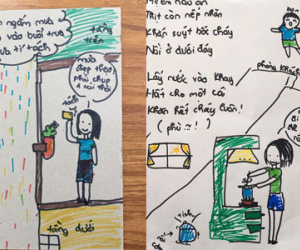 ngắm mưa
vào buổi trưa
tí tách
tầng trên
mưa
đẹp thế!
phải chụp
1 cái thôi
tách
tầng dưới
Mẹ em nấu ăn
Thịt còn nếp nhăn
Khăn suýt bốc cháy
Nồi ở dưới đáy
Lấy nước vào khay
Hất cho một cái
Khăn hết cháy luôn!
(phù ~!)
phòng khách